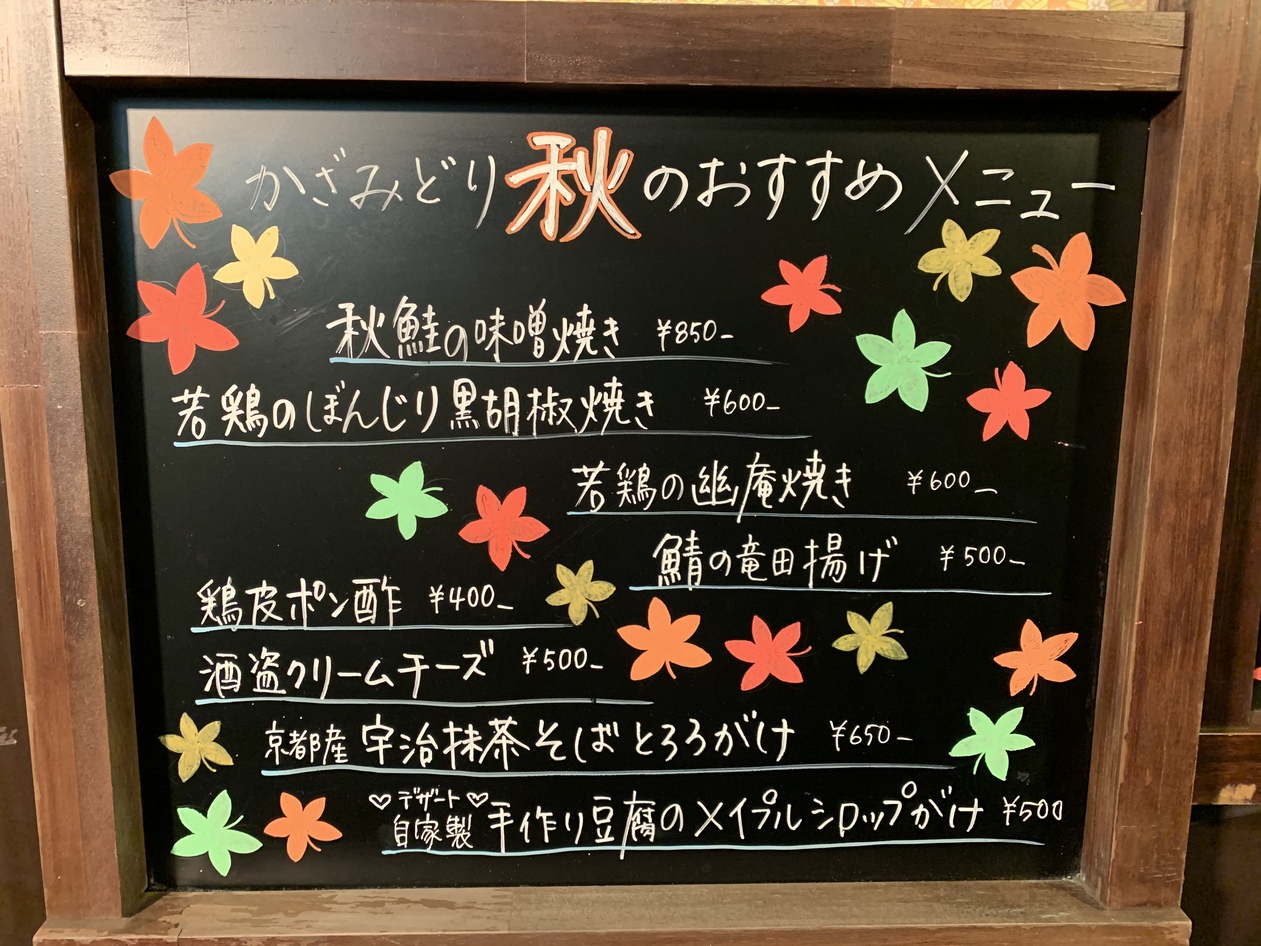 かざみどり秋のおすすめメニュー
秋鮭の味噌焼き ¥850-
若鶏のぼんじり黒胡椒焼き ¥600-
若鶏の幽庵焼き ¥600-
鯖の竜田揚げ ¥500-
鶏皮ポン酢 ¥400-
酒盗クリームチーズ ¥500-
京都産 宇治抹茶そばとろろがけ ¥650-
♡デザート♡
自家製 手作り豆腐のメイプルシロップがけ ¥500